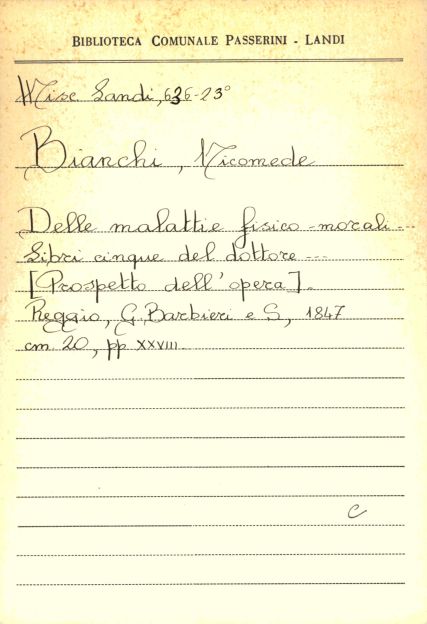 BIBLIOTECA COMUNALE PASSERINI - LANDI
Misc. Landi, 636-23°
Bianchi, Nicomede
Delle malattie fisico-morali...
Libri cinque del dottore ...
[Prospetto dell'opera].
Reggio, G. Barbieri e S, 1847
cm. 20, pp. XXVIII.
C